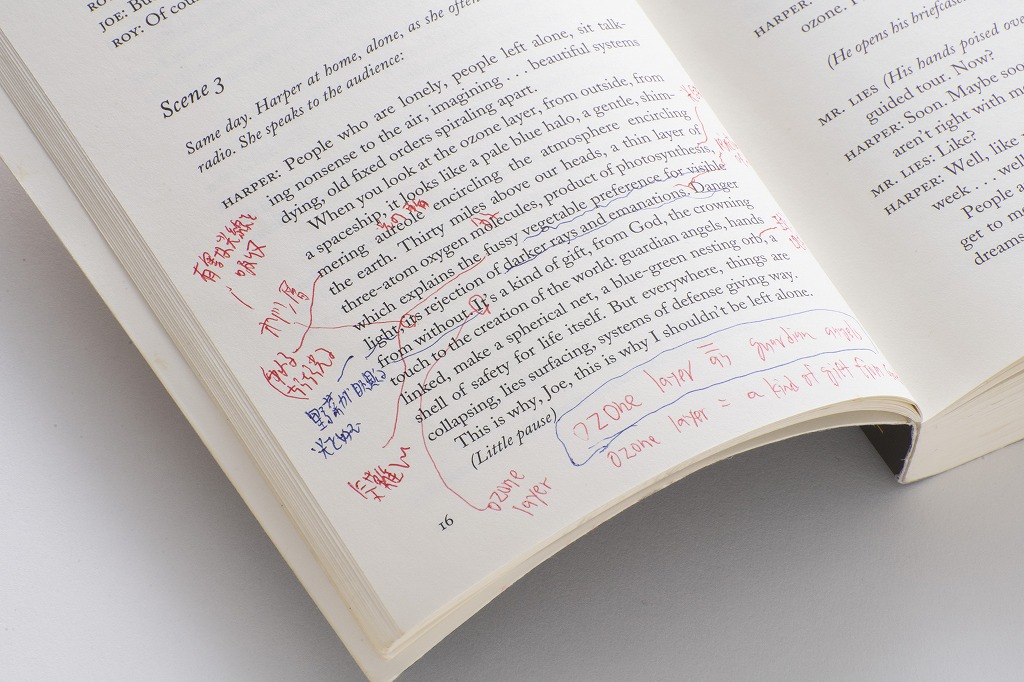 JOE: Bu
ROY: Of cou
Scene 3
Same day. Harper at home, alone, as she often
radio. She speaks to the audience:
HARPER: People who are lonely, people left alone, sit talk-
ing nonsense to the air, imagining . . . beautiful systems
dying, old fixed orders spiraling apart.
When you look at the ozone layer, from outside, from
a spaceship, it looks like a pale blue halo, a gentle, shim-
mering aureole encircling the atmosphere encircling
the earth. Thirty miles above our heads, a thin layer of
three-atom oxygen molecules, product of photosynthesis,
which explains the fussy vegetable preference for visible
light, its rejection of darker rays and emanations. Danger
from without. It's a kind of gift, from God, the crowning
touch to the creation of the world: guardian angels, hands
linked, make a spherical net, a blue-green nesting orb, a
shell of safety for life itself. But everywhere, things are
collapsing, lies surfacing, systems of defense giving way.
This is why, Joe, this is why I shouldn't be left alone.
(Little pause)
ozone layer as guardian angels
ozone layer = a kind of gift from
ozone
layer
16
HARPER:
ozone. I
(He opens his briefcase
MR. LIES (His hands poised ove
guided tour. Now?
HARPER: Soon. Maybe soo
aren't right with m
MR. LIES: Like?
HARPER: Well, like
week . . . well
People a
get to m
dreams